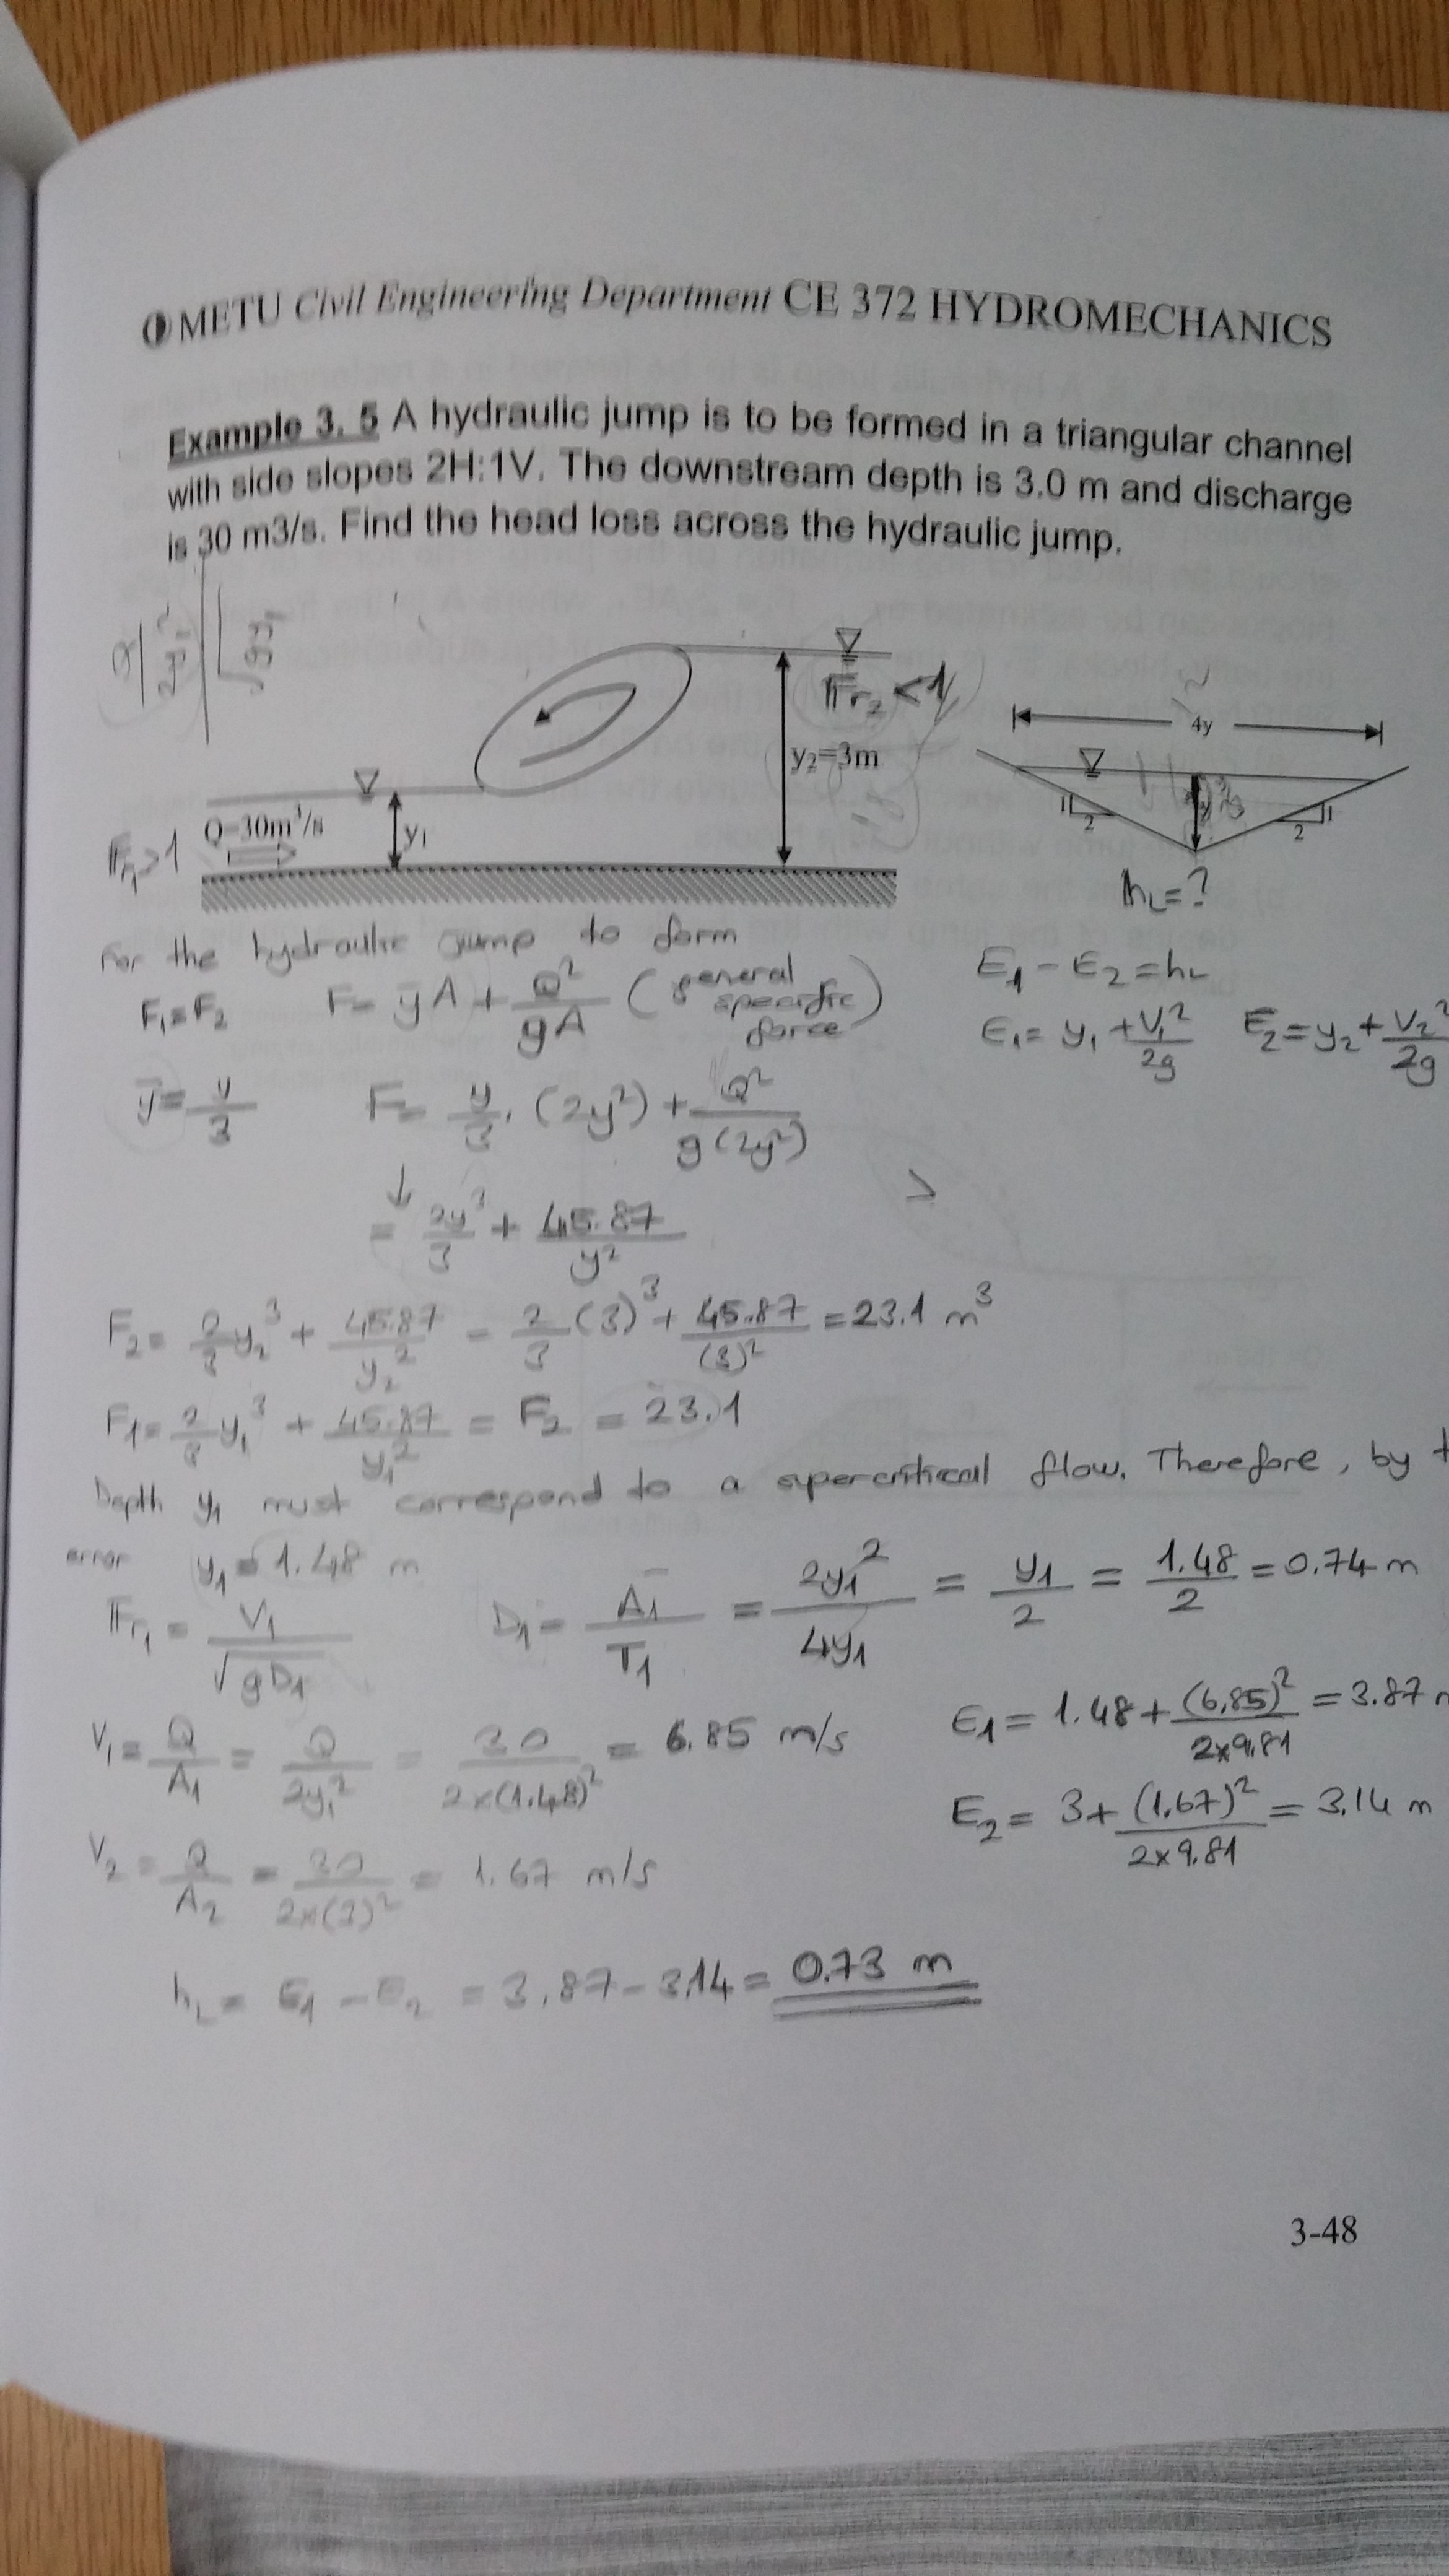 METU Civil Engineering Department CE 372 HYDROMECHANICS
Example 3. 5 A hydraulic jump is to be formed in a triangular channel
with side slopes 2H:1V. The downstream depth is 3.0 m and discharge
is 30 m3/s. Find the head loss across the hydraulic jump.
Fr₂ < 1
4y
y₂=3m
Q=30m³/s
y₁
Fr₁ > 1
1
2
2
1
hL = ?
For the hydraulic jump to form
F₁ = F₂ F = ȳA + Q²/gA (general specific force)
E₁ - E₂ = hL
E₁ = y₁ + V₁²/2g E₂ = y₂ + V₂²/2g
ȳ = y/3 F = y/3 . (2y²) + Q²/g(2y²)
↓
= 2y³/3 + 45.87/y²
F₂ = 2/3 y₂³ + 45.87/y₂² = 2/3 (3)³ + 45.87/(3)² = 23.1 m³
F₁ = 2/3 y₁³ + 45.87/y₁² = F₂ = 23.1
Depth y₁ must correspond to a supercritical flow. Therefore, by
error y₁ = 1.48 m
Fr₁ = V₁/√gD₁ D₁ = A₁/T₁ = 2y₁²/4y₁ = y₁/2 = 1.48/2 = 0.74 m
V₁ = Q/A₁ = Q/2y₁² = 30/2x(1.48)² = 6.85 m/s
E₁ = 1.48 + (6.85)²/2x9.81 = 3.87 m
V₂ = Q/A₂ = 30/2x(3)² = 1.67 m/s
E₂ = 3 + (1.67)²/2x9.81 = 3.14 m
hL = E₁ - E₂ = 3.87 - 3.14 = 0.73 m
3-48